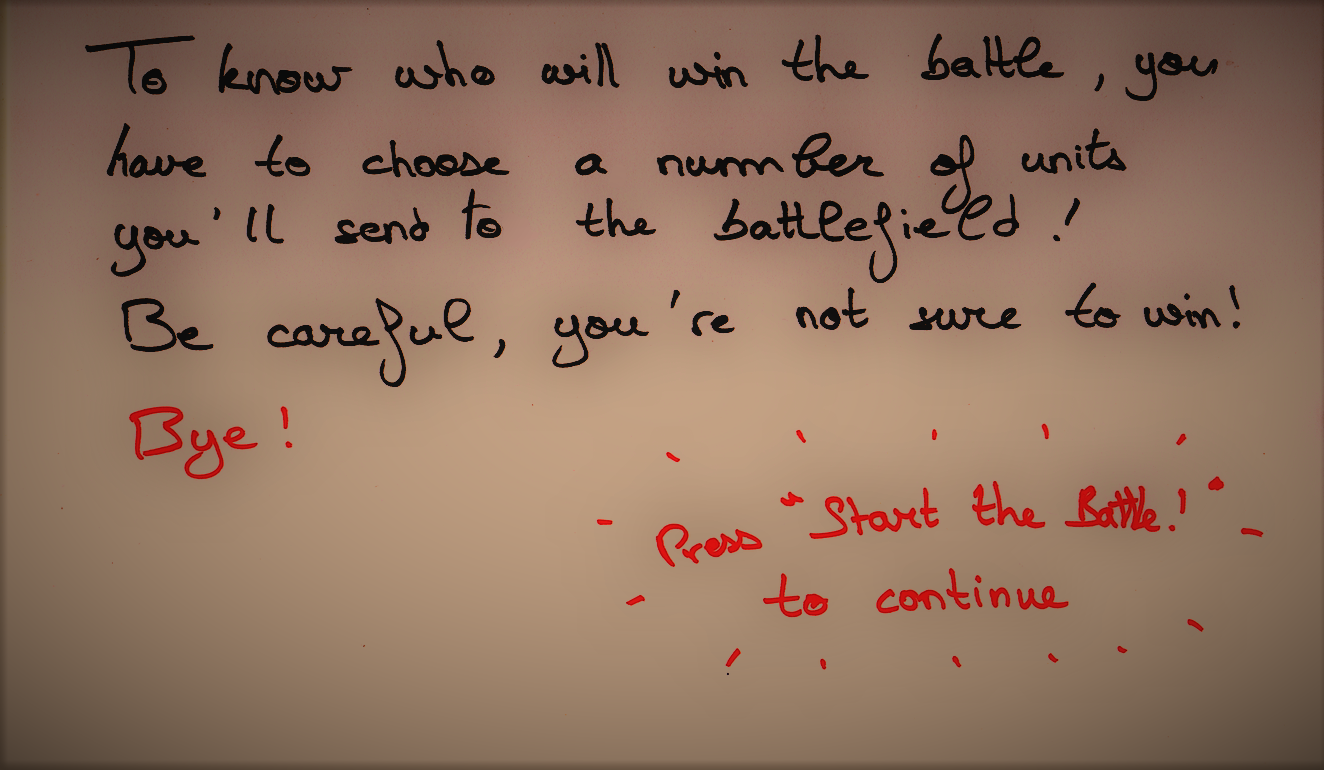 To know who will win the battle, you
have to choose a number of units
you'll send to the battlefield!
Be careful, you're not sure to win!
Bye!
Press "Start the Battle!"
to continue